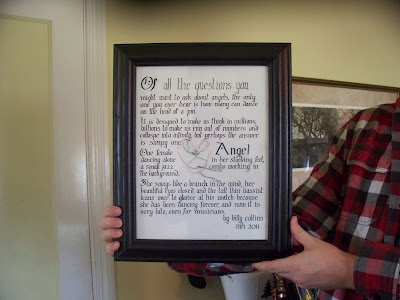 Of all the questions you
might want to ask about angels, the only
one you ever hear is how many can dance
on the head of a pin.
It is designed to make us think in millions,
billions, to make us run out of numbers and
collapse into infinity, but perhaps the answer
is simply one:
One female Angel
dancing alone in her stocking feet,
a small jazz combo working in
the background.
She sways like a branch in the wind, her
beautiful eyes closed, and the tall thin bassist
leans over to glance at his watch because
she has been dancing forever, and now it is
very late, even for musicians.
by billy collins
2011